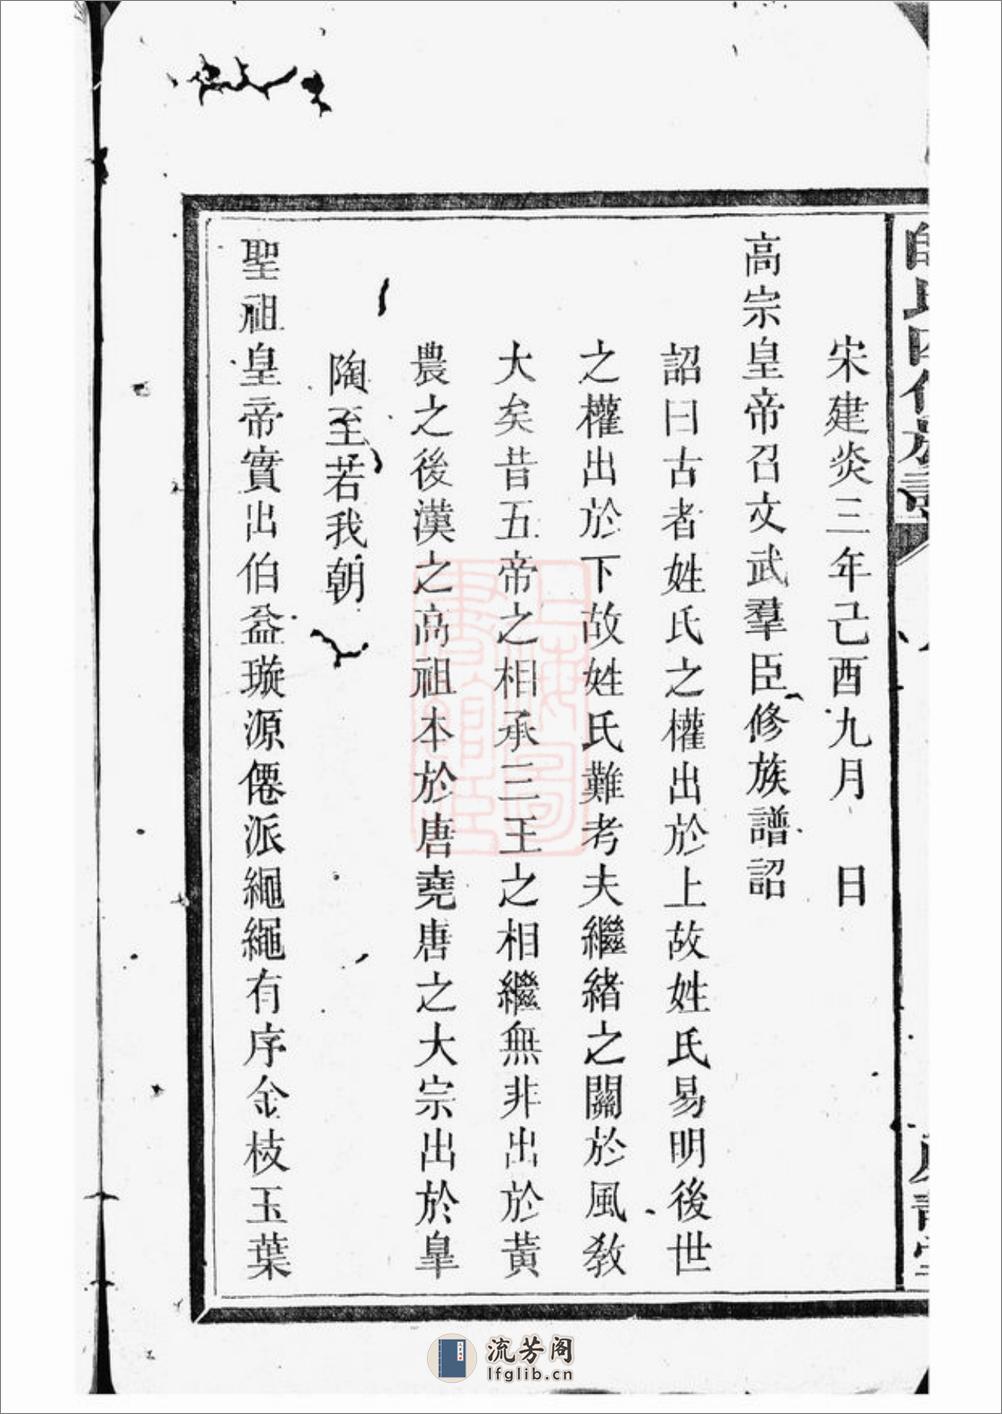 宋建炎三年己酉九月　日
高宗皇帝召文武羣臣修族譜詔
詔曰古者姓氏之權出於上故姓氏易明後世
之權出於下故姓氏難考夫繼緒之關於風教
大矣昔五帝之相承三王之相繼無非出於黃
農之後漢之高祖本於唐堯唐之大宗出於皐
陶至若我朝
聖祖皇帝實出伯益璇源僊派繩繩有序金枝玉葉
流芳阁
lfglib.cn